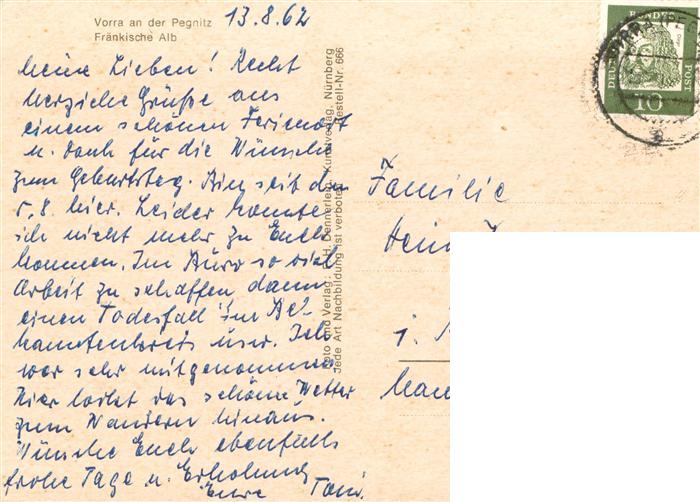 Vorra an der Pegnitz
Fränkische Alb
13.8.62
Meine Lieben! Recht
herzliche Grüße aus
einem schönen Ferienort
u. dank für die Wünsche
zum Geburtstag. Bin seit dem
5.8. hier. Leider konnte
ich nicht mehr zu Euch
kommen. Im Büro so viel
Arbeit zu schaffen dann
einen Todesfall im Be-
kanntenkreis usw. Ich
war sehr mitgenommen.
Hier lockt das schöne Wetter
zum Wandern hinaus.
Wünsche Euch ebenfalls
frohe Tage u. Erholung
Eure Toni.
Foto und Verlag: H. Dennerlein, Kunstverlag, Nürnberg
Jede Art Nachbildung ist verboten
Bestell-Nr. 666
Familie
i.
DEUTSCHE
BUNDESPOST
10